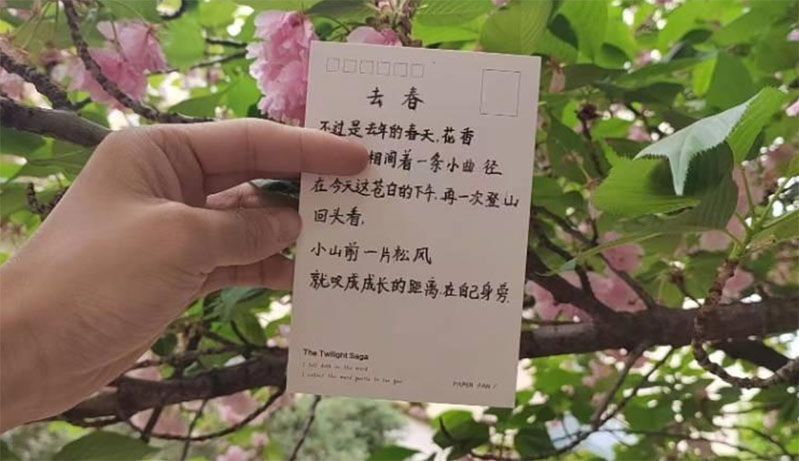 去春
不过是去年的春天,花香
相间着一条小曲径
在今天这苍白的下午,再一次登山
回头看,
小山前一片松风
就叹成成长的距离,在自己身旁.
The Twilight Saga
PAPER FAN /